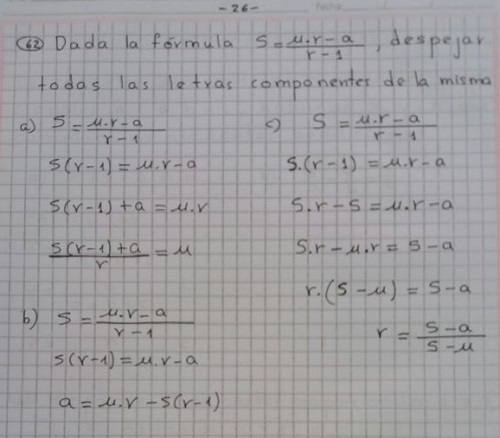 - 26 -
62 Dada la fórmula S = μ.r - a / r - 1 , despejar
todas las letras componentes de la misma
a) S = μ.r - a / r - 1
S(r - 1) = μ.r - a
S(r - 1) + a = μ.r
S(r - 1) + a / r = μ
b) S = μ.r - a / r - 1
S(r - 1) = μ.r - a
a = μ.r - S(r - 1)
c) S = μ.r - a / r - 1
S.(r - 1) = μ.r - a
S.r - S = μ.r - a
S.r - μ.r = S - a
r.(S - μ) = S - a
r = S - a / S - μ